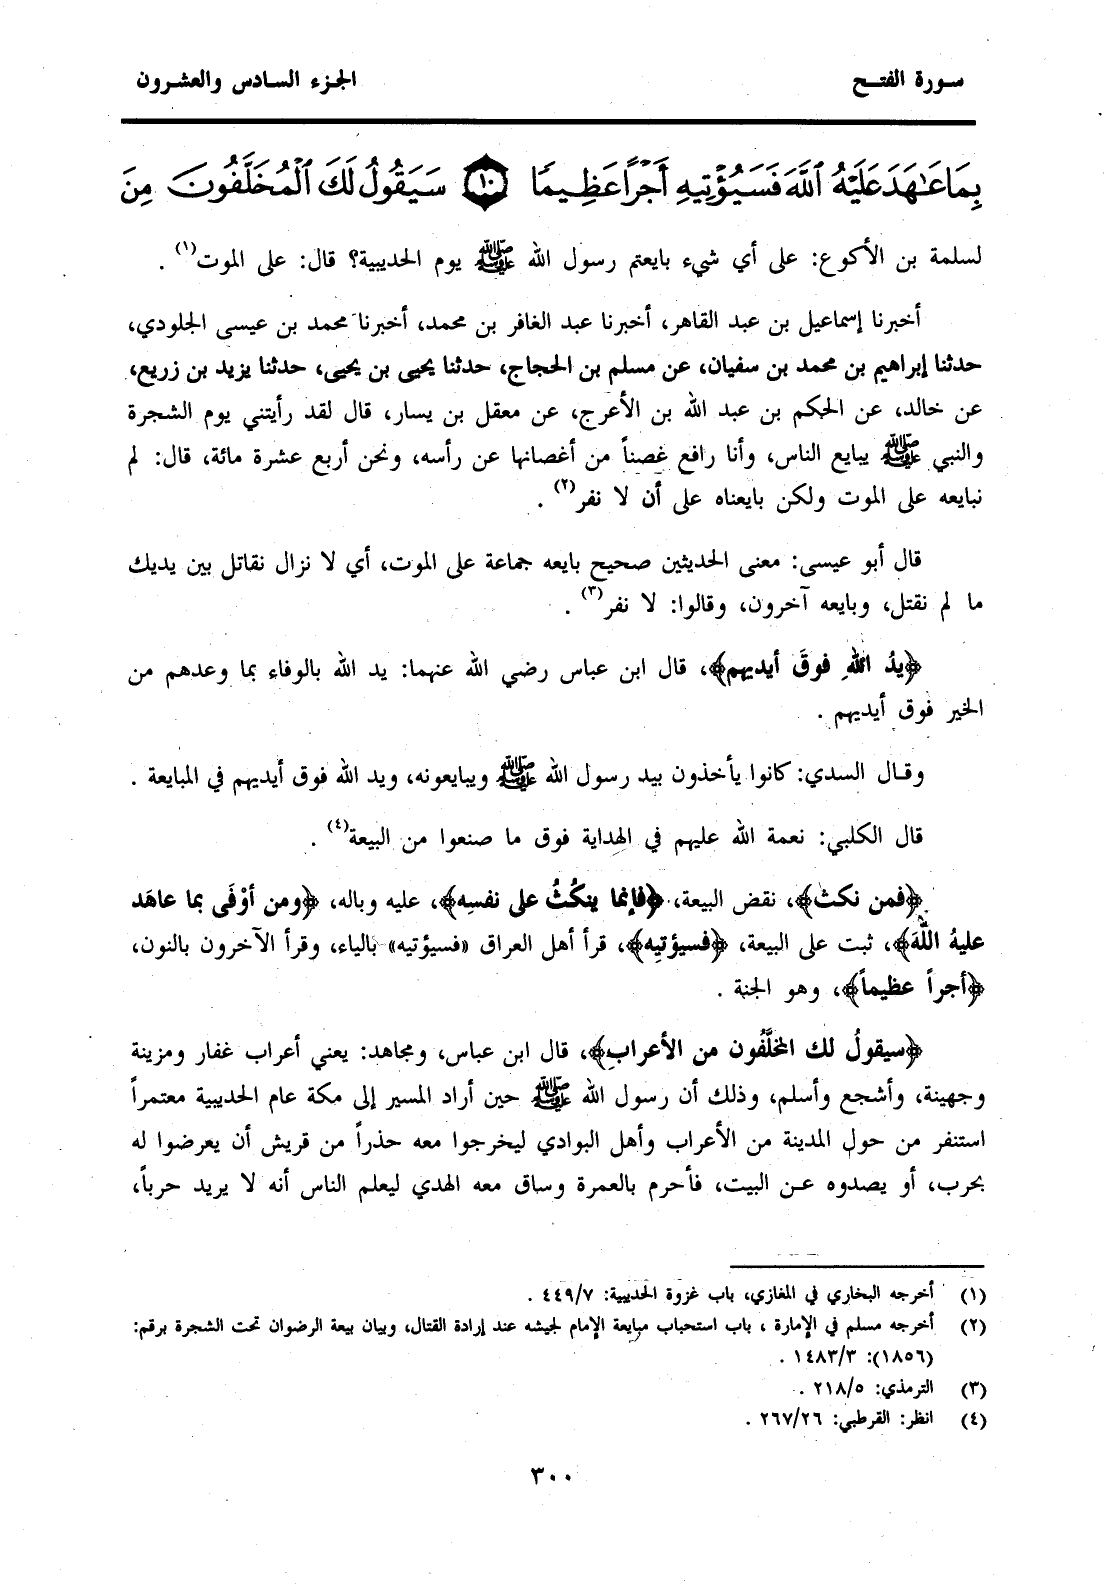 سورة الفتح
الجزء السادس والعشرون
بِمَا عَـٰهَدَ عَلَيْهُ ٱللَّهَ فَسَيُؤْتِيهِ أَجْرًا عَظِيمًا ۝١٠ سَيَقُولُ لَكَ ٱلْمُخَلَّفُونَ مِنَ
لسلمة بن الأكوع: على أي شيء بايعتم رسول الله ﷺ يوم الحديبية؟ قال: على الموت(١) .
أخبرنا إسماعيل بن عبد القاهر، أخبرنا عبد الغافر بن محمد، أخبرنا محمد بن عيسى الجلودي،
حدثنا إبراهيم بن محمد بن سفيان، عن مسلم بن الحجاج، حدثنا يحيى بن يحيى، حدثنا يزيد بن زريع،
عن خالد، عن الحكم بن عبد الله بن الأعرج، عن معقل بن يسار، قال لقد رأيتني يوم الشجرة
والنبي ﷺ يبايع الناس، وأنا رافع غصناً من أغصانها عن رأسه، ونحن أربع عشرة مائة، قال: لم
نبايعه على الموت ولكن بايعناه على أن لا نفر(٢) .
قال أبو عيسى: معنى الحديثين صحيح بايعه جماعة على الموت، أي لا نزال نقاتل بين يديك
ما لم نقتل، وبايعه آخرون، وقالوا: لا نفر(٣) .
﴿يدُ اللهِ فوقَ أيديهم﴾، قال ابن عباس رضي الله عنهما: يد الله بالوفاء بما وعدهم من
الخير فوق أيديهم .
وقال السدي: كانوا يأخذون بيد رسول الله ﷺ ويبايعونه، ويد الله فوق أيديهم في المبايعة .
قال الكلبي: نعمة الله عليهم في الهداية فوق ما صنعوا من البيعة(٤) .
﴿فمن نكث﴾، نقض البيعة، ﴿فإنما ينكُثُ على نفسِه﴾، عليه وباله، ﴿ومن أوْفَى بما عاهَد
عليهُ اللَّهَ﴾، ثبت على البيعة، ﴿فسيؤتيِه﴾، قرأ أهل العراق «فسيؤتيه» بالياء، وقرأ الآخرون بالنون،
﴿أجراً عظيماً﴾، وهو الجنة .
﴿سيقولُ لك المخلَّفُون من الأعرابِ﴾، قال ابن عباس، ومجاهد: يعني أعراب غفار ومزينة
وجهينة، وأشجع وأسلم، وذلك أن رسول الله ﷺ حين أراد المسير إلى مكة عام الحديبية معتمراً
استنفر من حول المدينة من الأعراب وأهل البوادي ليخرجوا معه حذراً من قريش أن يعرضوا له
بحرب، أو يصدوه عـن البيت، فأحرم بالعمرة وساق معه الهدي ليعلم الناس أنه لا يريد حرباً،
(١) أخرجه البخاري في المغازي، باب غزوة الحديبية: ٤٤٩/٧ .
(٢) أخرجه مسلم في الإمارة ، باب استحباب مبايعة الإمام لجيشه عند إرادة القتال، وبيان بيعة الرضوان تحت الشجرة برقم:
(١٨٥٦): ١٤٨٣/٣ .
(٣) الترمذي: ٢١٨/٥ .
(٤) انظر: القرطبي: ٢٦٧/٢٦ .
٣٠٠